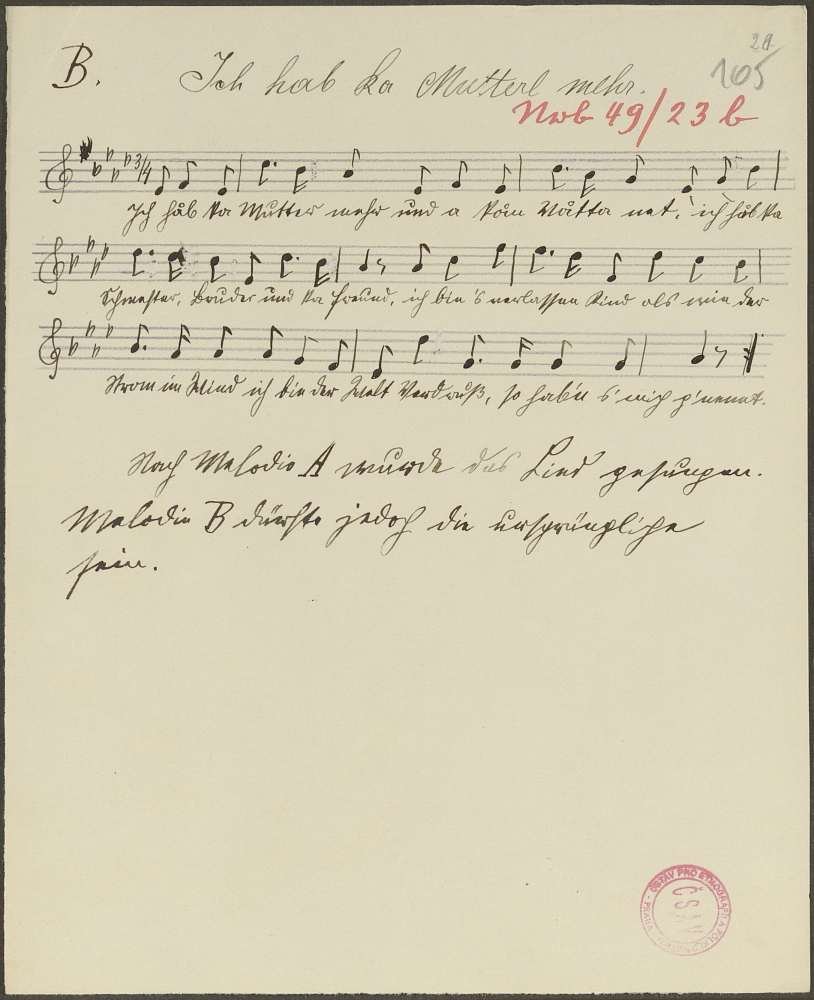 21
105
B. Ich hab ka Mutterl mehr.
Nrb 49/23 b
3/4
Ich håb ka Mutter mehr und a kåm Våtta net, ich håb ka
Schwester, Bruder und ka Freund, ich bin 's verlassen Kind als wie der
Strom im Wind ich bin der Welt Verdruß, so hab'n s' mich g'nennt.
Nach Melodie A wurde das Lied gesungen.
Melodie B dürfte jedoch die ursprüngliche
sein.
ÚSTAV PRO ETNOGRAFII A FOLKLORISTIKU - PRAHA -
ČSAV